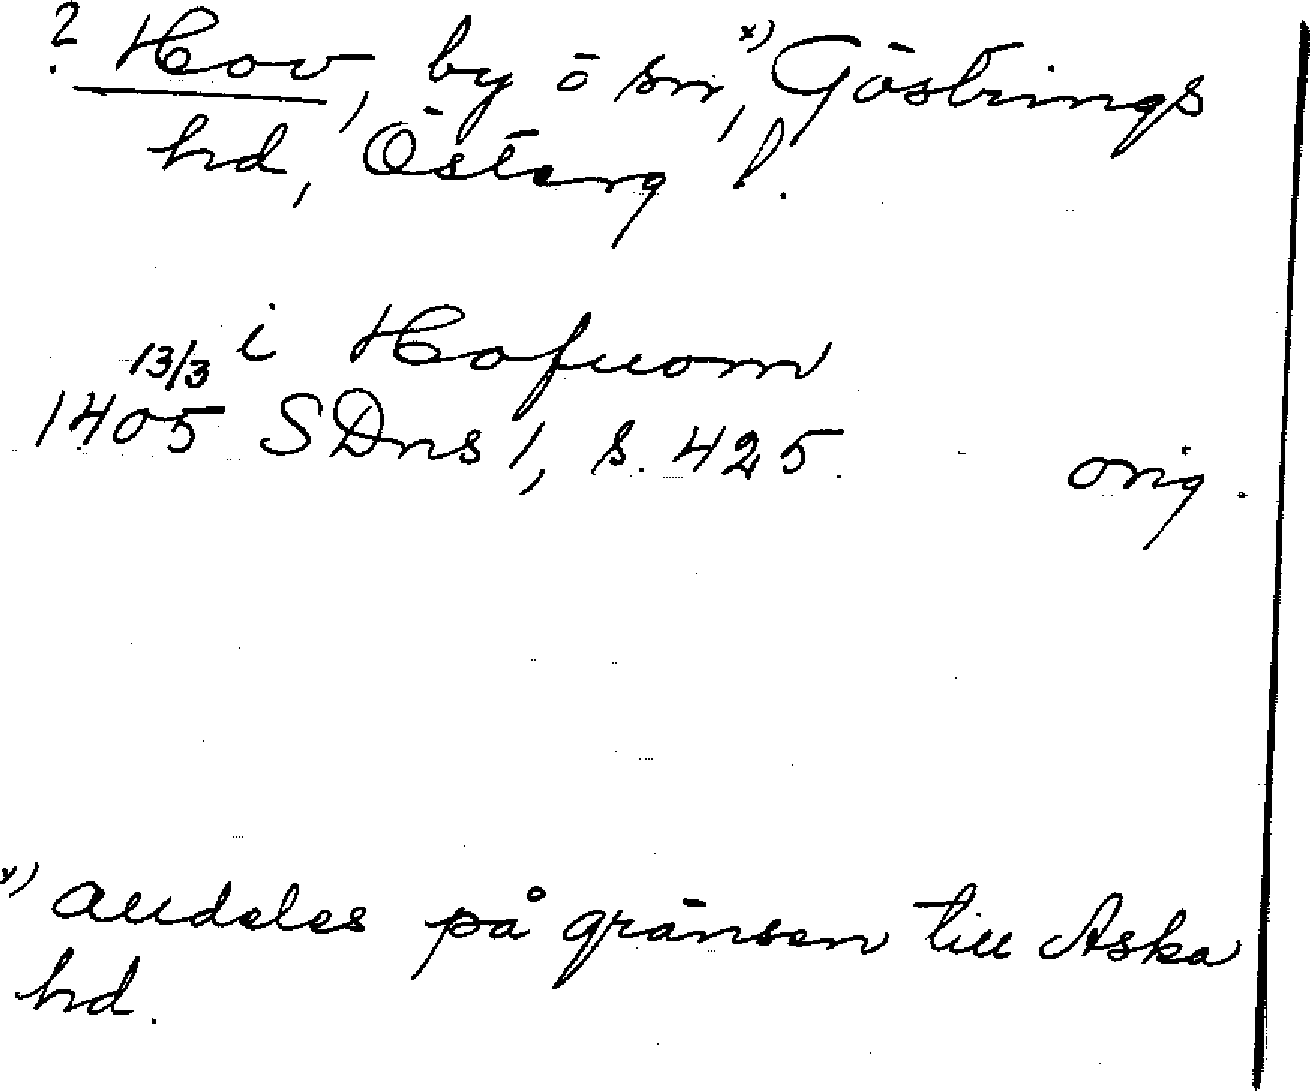 ? Hov, by o sn, x) Göstrings
hd, Österg l.
i Hofuom
13/3
1405 SDns 1, s. 425. orig.
x) alldeles på gränsen till Aska
hd.